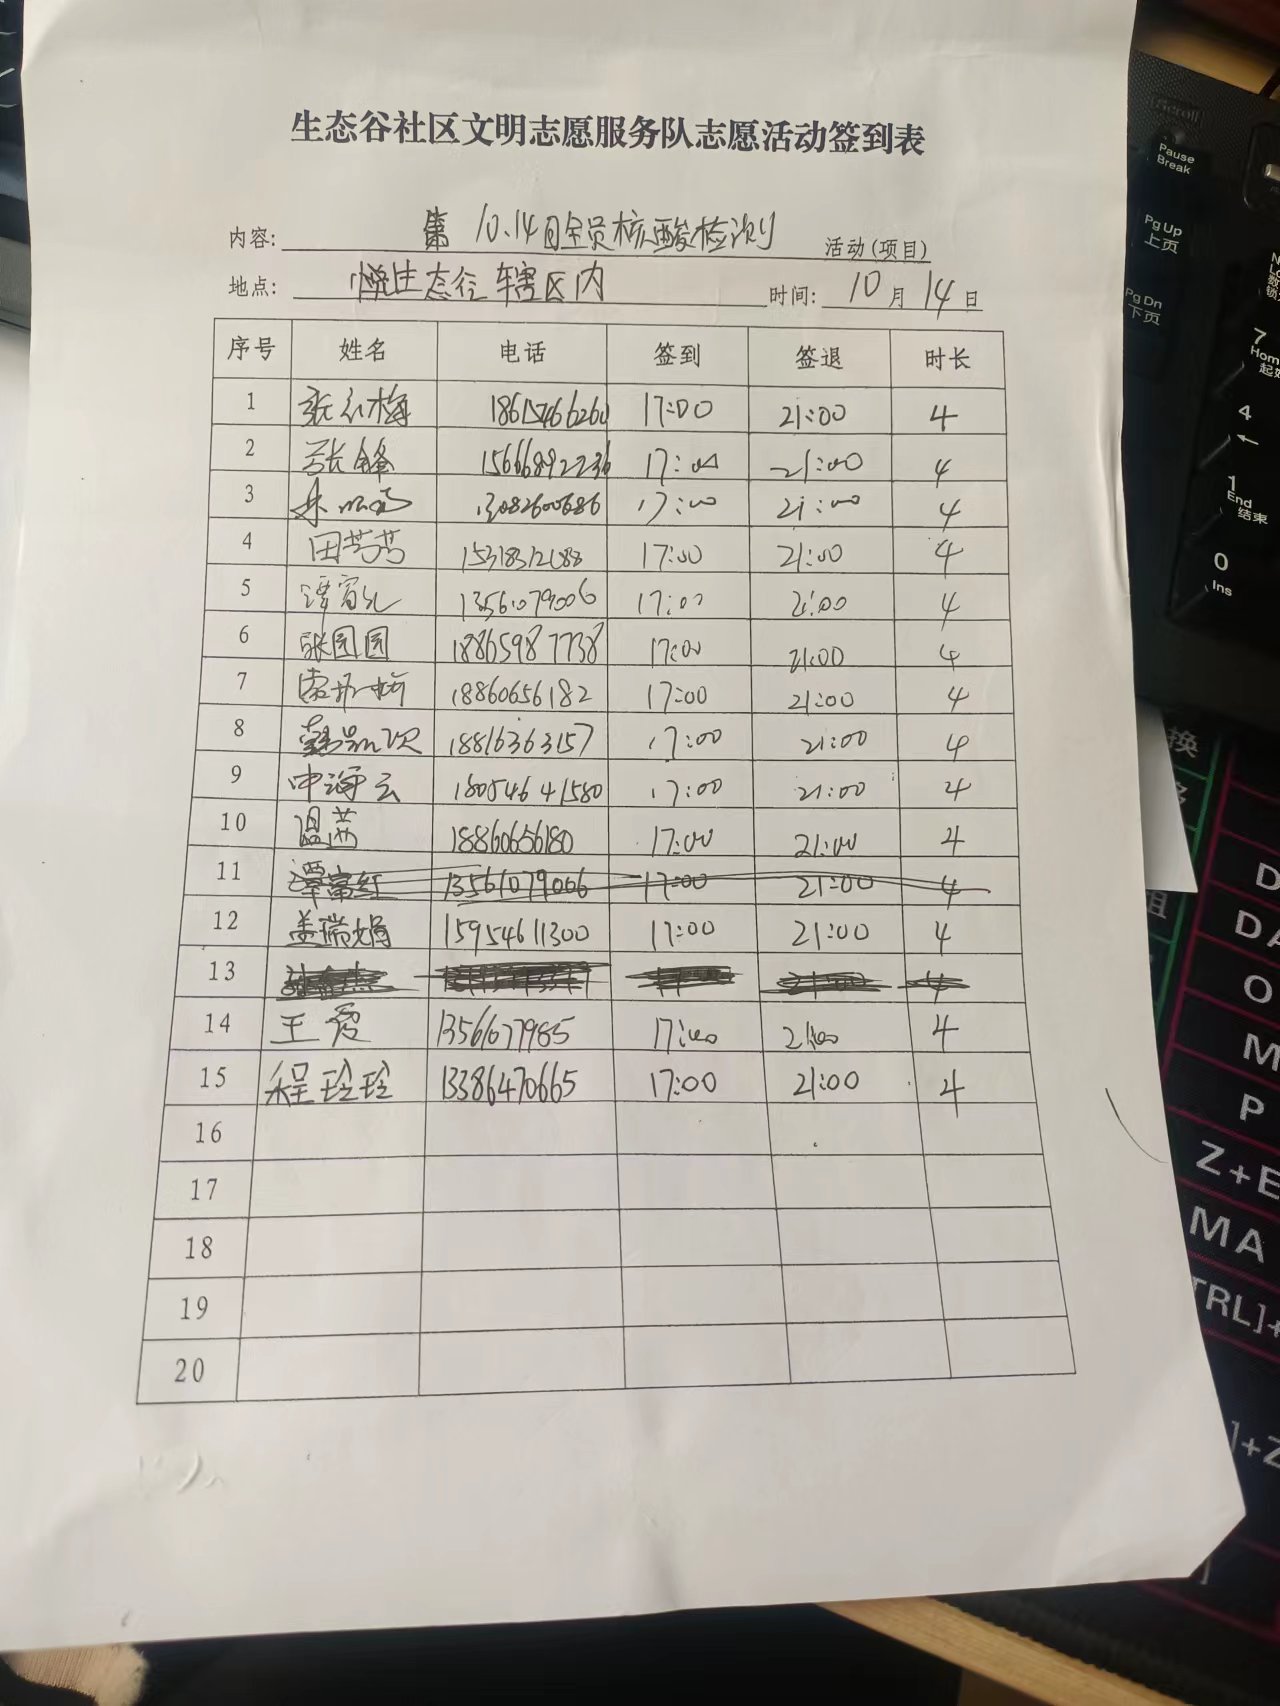 生态谷社区文明志愿服务队志愿活动签到表
内容: 10.14日全员核酸检测 活动(项目)
地点: 生态谷辖区内 时间: 10月14日
序号 姓名 电话 签到 签退 时长
1 张红梅 18615466260 17:00 21:00 4
2 张锋 15666892236 17:00 21:00 4
3 13082600686 17:00 21:00 4
4 田芳芳 17:00 21:00 4
5 谭富红 13561079006 17:00 21:00 4
6 张圆圆 18865987738 17:00 21:00 4
7 18860656182 17:00 21:00 4
8 18816363157 17:00 21:00 4
9 申海云 18054641580 17:00 21:00 4
10 温茜 18860656180 17:00 21:00 4
11 谭富红 13561079066 17:00 21:00 4
12 盖瑞娟 15954611300 17:00 21:00 4
13
14 王霞 13561077985 17:00 21:00 4
15 程玲玲 13386470665 17:00 21:00 4
16
17
18
19
20
Scroll
Pause
Break
PgUp
上页
PgDn
下页
7
Hom
4
←
1
End
结束
0
Ins
换
D
DA
O
M
P
Z+E
MA
TRL]+
]+Z